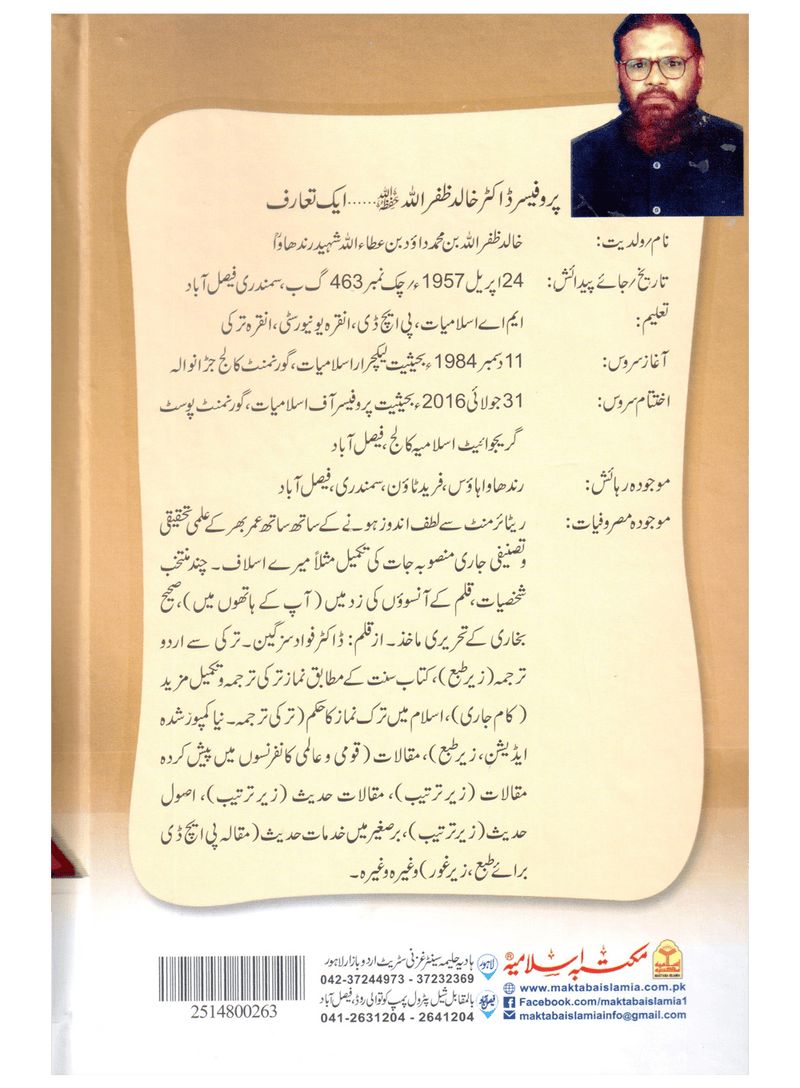 پروفیسر ڈاکٹر خالد ظفر اللہ ﷾......ایک تعارف
نام/ولدیت: خالد ظفر اللہ بن محمد داؤد بن عطاء اللہ شہید رندھاوا
تاریخ/جائے پیدائش: 24 اپریل 1957ء/چک نمبر 463 گ ب، سمندری فیصل آباد
تعلیم: ایم اے اسلامیات، پی ایچ ڈی، انقرہ یونیورسٹی، انقرہ ترکی
آغاز سروس: 11 دسمبر 1984ء بحیثیت لیکچرار اسلامیات، گورنمنٹ کالج جڑانوالہ
اختتام سروس: 31 جولائی 2016ء بحیثیت پروفیسر آف اسلامیات، گورنمنٹ پوسٹ
گریجوائیٹ اسلامیہ کالج، فیصل آباد
موجودہ رہائش: رندھاوا ہاؤس، فرید ٹاؤن، سمندری، فیصل آباد
موجودہ مصروفیات: ریٹائرمنٹ سے لطف اندوز ہونے کے ساتھ ساتھ عمر بھر کے علمی تحقیقی
و تصنیفی جاری منصوبہ جات کی تکمیل مثلاً میرے اسلاف۔ چند منتخب
شخصیات، قلم کے آنسوؤں کی زد میں (آپ کے ہاتھوں میں)، صحیح
بخاری کے تحریری ماخذ۔ از قلم: ڈاکٹر فواد سزگین۔ ترکی سے اردو
ترجمہ (زیر طبع)، کتاب سنت کے مطابق نماز ترکی ترجمہ و تکمیل مزید
(کام جاری)، اسلام میں ترک نماز کا حکم (ترکی ترجمہ۔ نیا کمپوز شدہ
ایڈیشن، زیر طبع)، مقالات (قومی و عالمی کانفرنسوں میں پیش کردہ
مقالات (زیر ترتیب)، مقالات حدیث (زیر ترتیب)، اصول
حدیث (زیر ترتیب)، برصغیر میں خدمات حدیث (مقالہ پی ایچ ڈی
برائے طبع، زیر غور) وغیرہ وغیرہ۔
مکتبہ اسلامیہ®
MAKTABA ISLAMIA
www.maktabaislamia.com.pk
Facebook.com/maktabaislamia1
maktabaislamiainfo@gmail.com
لاہور ہادیہ حلیمہ سینٹر غزنی سٹریٹ اردو بازار لاہور
042-37244973 - 37232369
فیصل آباد بالمقابل شیل پٹرول پمپ کوتوالی روڈ، فیصل آباد
041-2631204 - 2641204
2514800263